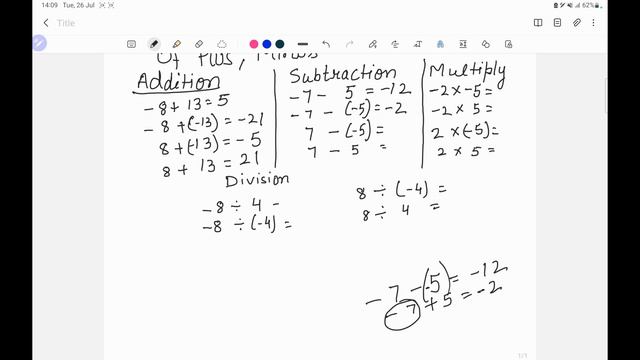 14:09 Tue, 26 Jul
62%
Title
Of Plus, Minus
Addition
-8 + 13 = 5
-8 + (-13) = -21
8 + (-13) = -5
8 + 13 = 21
Subtraction
-7 - 5 = -12
-7 - (-5) = -2
7 - (-5) =
7 - 5 =
Multiply
-2 × -5 =
-2 × 5 =
2 × (-5) =
2 × 5 =
Division
-8 ÷ 4 -
-8 ÷ (-4) =
8 ÷ (-4) =
8 ÷ 4 =
-7 - (-5) = -12
-7 + 5 = -2
1/1